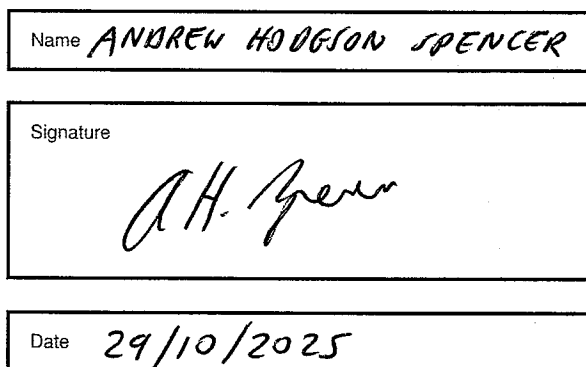 Name ANDREW HODGSON SPENCER
Signature
A H. Spencer
Date 29/10/2025